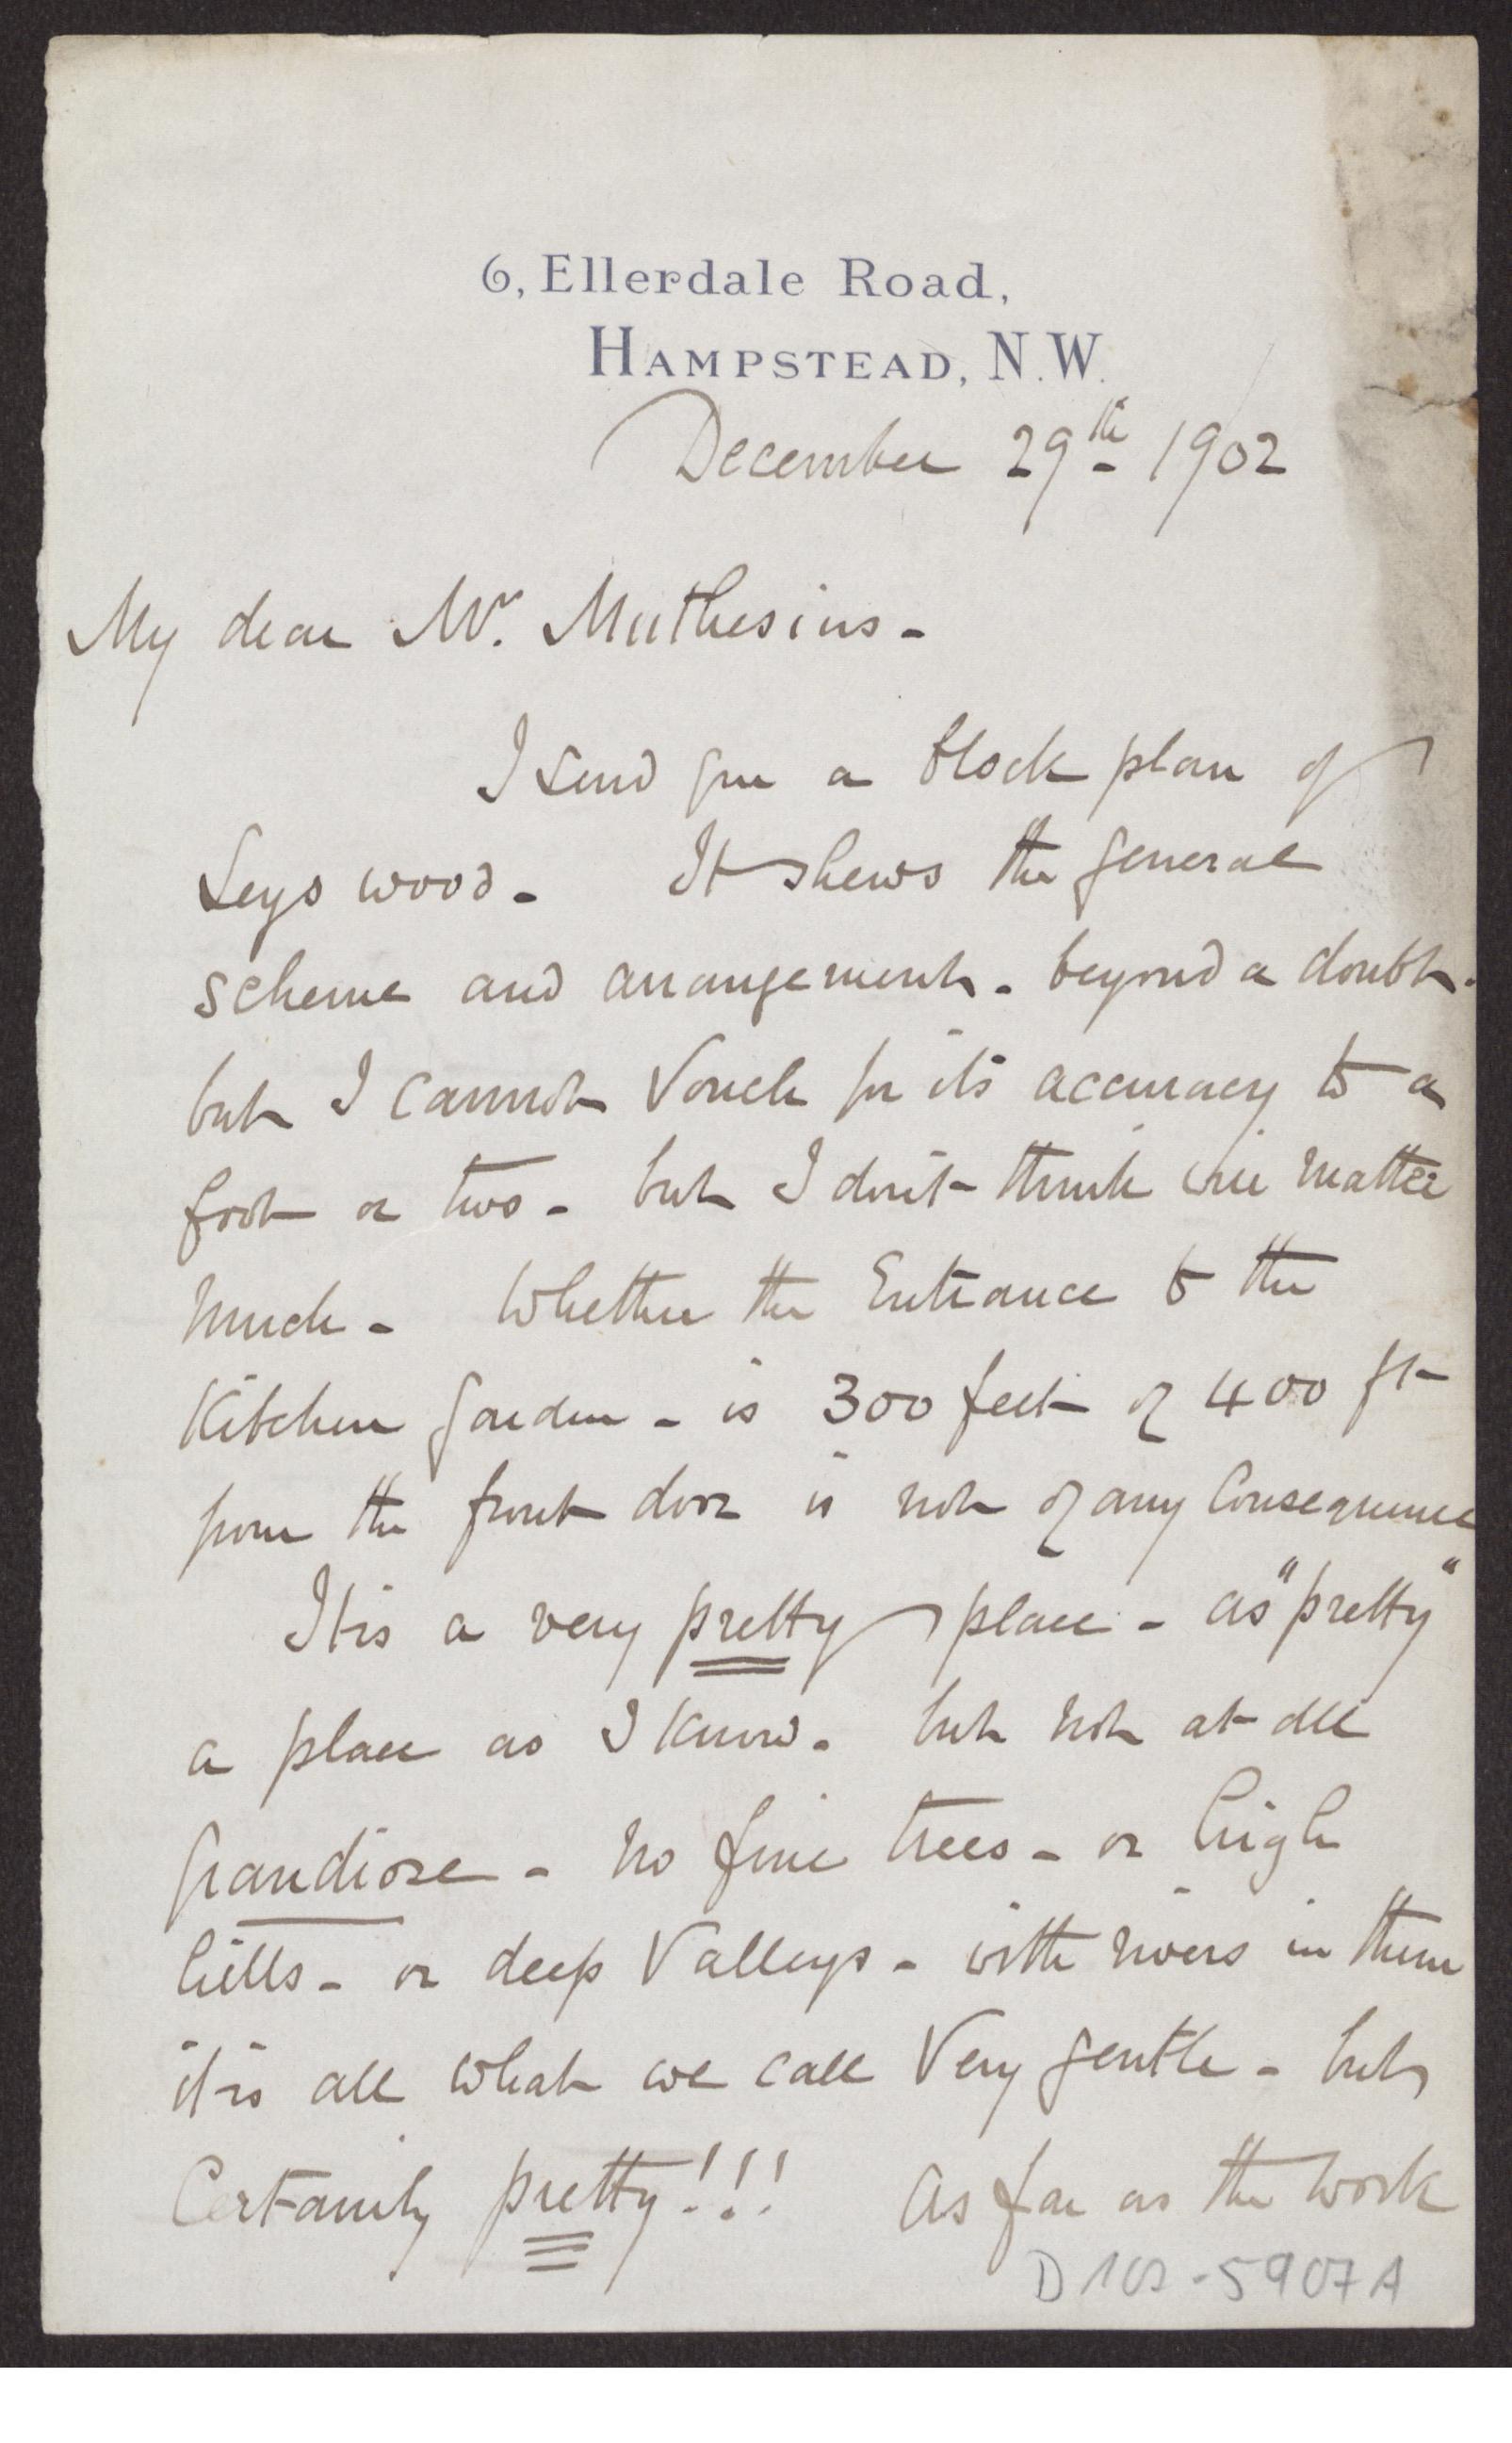 6, Ellerdale Road,
HAMPSTEAD, N.W.
December 29th 1902
My dear Mr. Muthesius -
I send you a block plan of
Leys wood - It shews the general
scheme and arrangement - beyond a doubt -
but I cannot vouch for its accuracy to a
foot or two - but I don't think will matter
much - Whether the Entrance to the
Kitchen Garden - is 300 feet or 400 ft
from the front door is not of any Consequence
It is a very pretty place - as "pretty"
a place as I know - but not at all
grandiose - no fine trees - or high
hills - or deep Valleys - with rivers in them
it is all what we call Very gentle - but
Certainly pretty!!! As far as the work
D 102-5907A